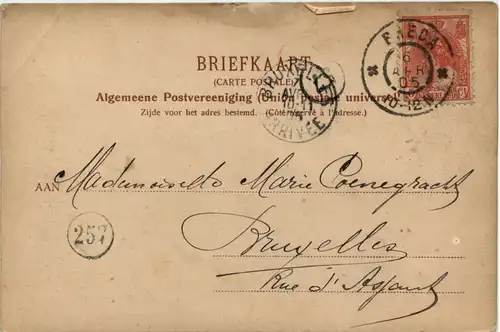 BRIEFKAART
(CARTE POSTALE)
Algemeene Postvereeniging (Union postale universelle)
Zijde voor het adres bestemd. (Côté réservé à l'adresse.)
BREDA
6
APR
05
10-12
7
AVR
10-11
ARRIVÉE
AAN Mademoiselle Marie Coenegracht
Bruxelles
Rue d'Assaut
257